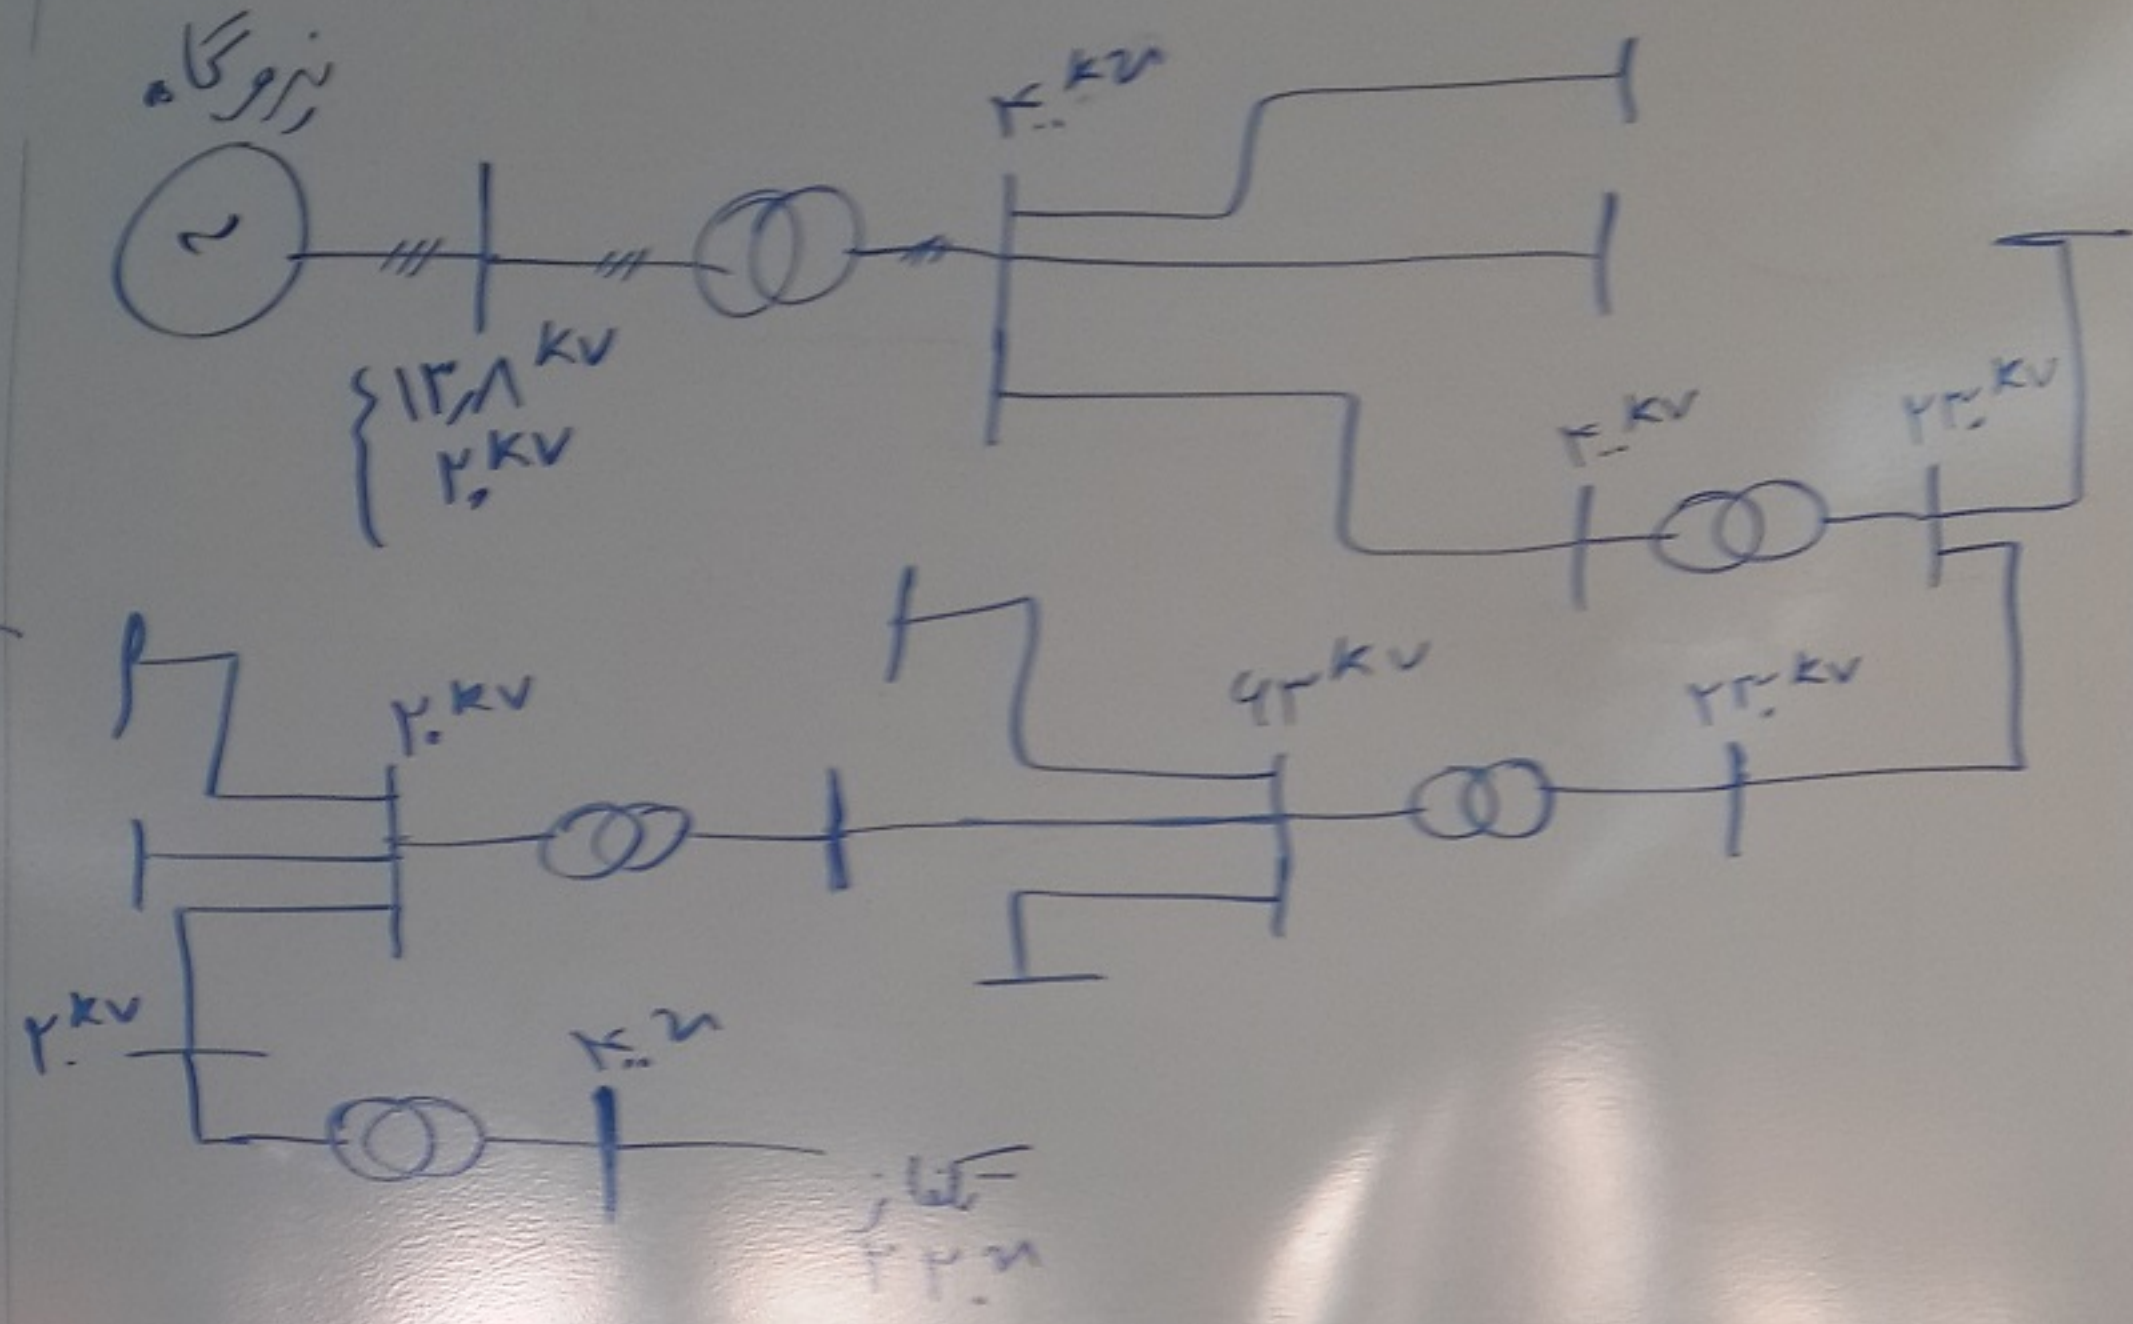 نیروگاه
~
۴۰۰ kv
۱۳٫۸ kv
۲۰ kv
۴۰۰ kv
۲۳۰ kv
۶۳ kv
۲۳۰ kv
۲۰ kv
۲۰ kv
۴۰۰ v
تکفاز
۲۲۰ v